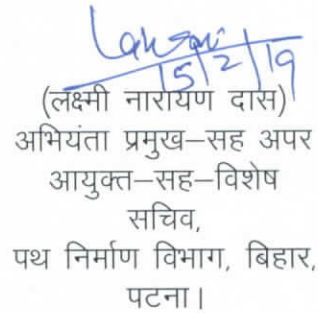 Laksmi
15/2/19
(लक्ष्मी नारायण दास)
अभियंता प्रमुख–सह अपर
आयुक्त–सह–विशेष
सचिव,
पथ निर्माण विभाग, बिहार,
पटना।